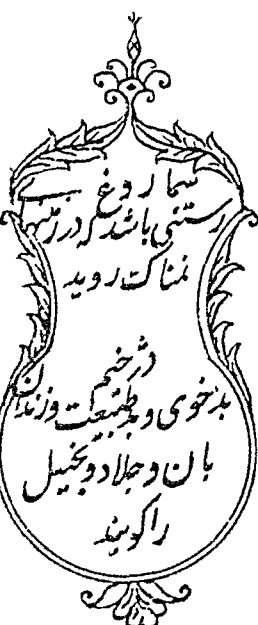 سماروغ
رستنی باشد که در زمین
نمناک روید
دژخیم
بدخوی و بد طبیعت و زندان
بان و جلاد و بخیل
را گویند